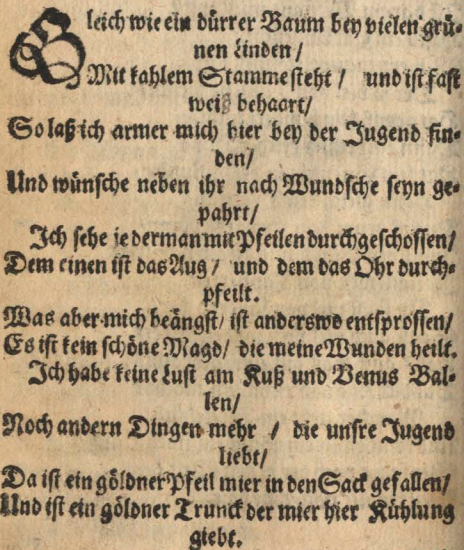 Gleich wie ein dürrer Baum bey vielen grü-
nen Linden /
Mit kahlem Stamme steht / und ist fast
weiß behaart /
So laß ich armer mich hier bey der Jugend fin-
den /
Und wünsche neben ihr nach Wundsche seyn ge-
pahrt /
Ich sehe jederman mit Pfeilen durchgeschossen /
Dem einen ist das Aug / und dem das Ohr durch-
pfeilt.
Was aber mich beängst / ist anderswo entsprossen /
Es ist kein schöne Magd / die meine Wunden heilt.
Ich habe keine Lust am Kuß und Venus Bal-
len /
Noch andern Dingen mehr / die unsre Jugend
liebt /
Da ist ein göldner Pfeil mier in den Sack gefallen /
Und ist ein göldner Trunck der mier hier Kühlung
giebt.